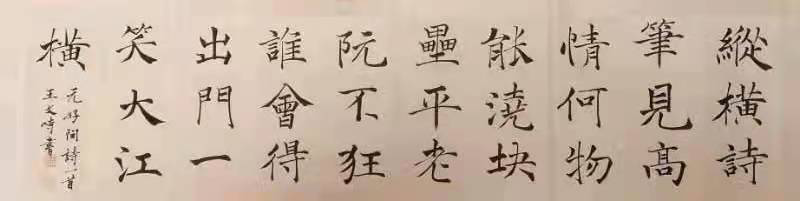 縱橫詩
筆見高
情何物
能澆塊
壘平老
阮不狂
誰會得
出門一
笑大江
橫
元好問詩一首
王文時書